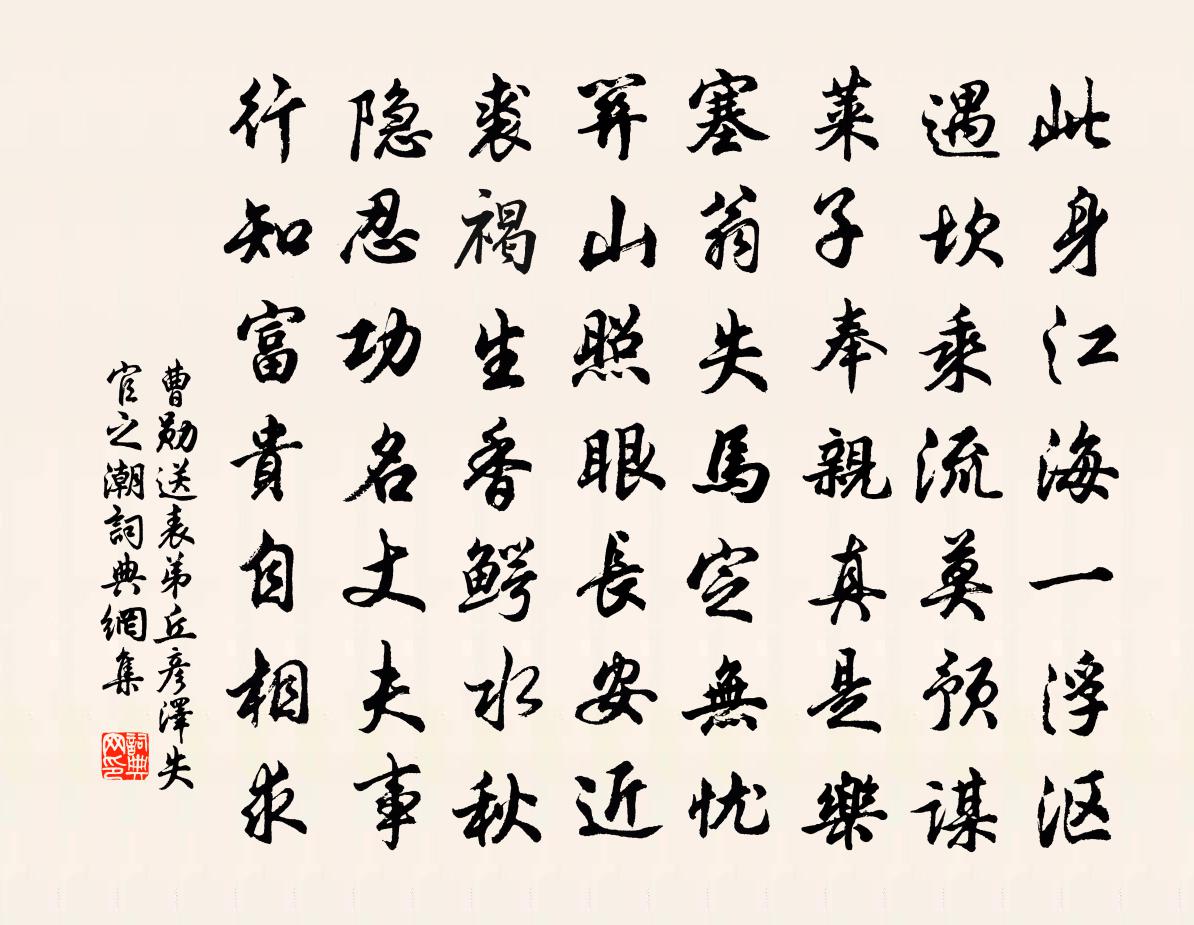 此身江海一浮沤
遇坎乘流莫预谋
莱子奉親真是樂
塞翁失馬定無忧
笄山照眼長安近
裘褐生香鳄水秋
隐忍功名丈夫事
行知富貴自相求
曹勛送表弟丘彦澤失
官之潮詞典網集
詞典
网印